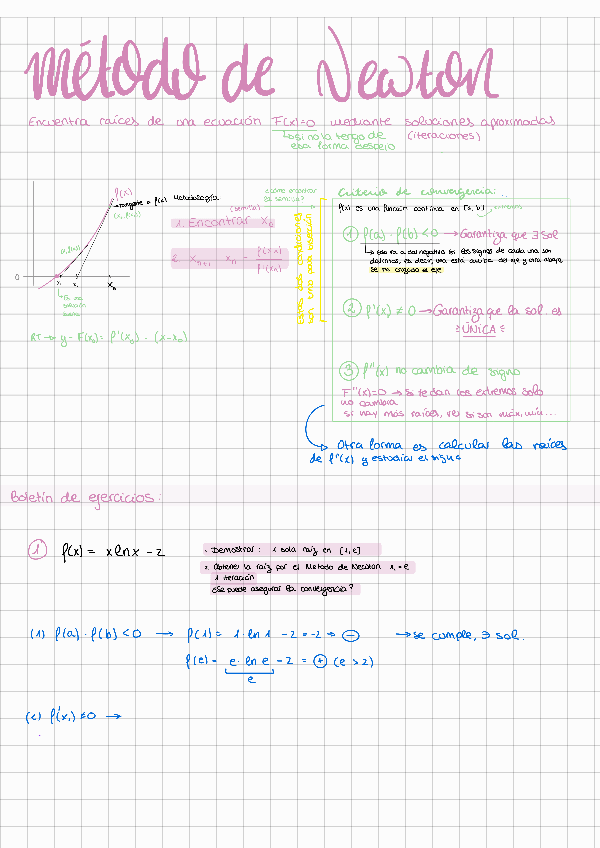 Método de Newton
Encuentra raíces de una ecuación F(x)=0 mediante soluciones aproximadas
↳ si no la tengo de (iteraciones)
esa forma despejo
f(x)
→ tangente a f(x)
0
x₀
RT → y - F(x₀) = f'(x₀) · (x-x₀)
Metodología
(semilla)
1. Encontrar x₀
2. xₙ₊₁ = xₙ - f(xₙ) / f'(xₙ)
¿Cómo encontrar
la semilla?
Criterio de convergencia:...
f(x) es una función continua en [a, b]
① f(a) · f(b) < 0 → Garantiza que ∃ sol
↳ esto va a dar negativo si los signos de cada una son
distintos, es decir, una está arriba del eje y otra abajo,
se ha cruzado el eje
② f'(x) ≠ 0 → Garantiza que la sol. es
ÚNICA
③ f''(x) no cambia de signo
F''(x)=0 → si te dan los extremos solo
no cambia
si hay más raíces, ver si son máx, mín...
↳ Otra forma es calcular las raíces
de f''(x) y estudiar el signo
Boletín de ejercicios:
① f(x) = x ln x - 2
1. Demostrar: 1 sola raíz en [1, e]
2. Obtener la raíz por el Método de Newton x₀ = e
1 iteración
¿Se puede asegurar la convergencia?
(1) f(a) · f(b) < 0 → f(1) = 1 · ln 1 - 2 = -2 → ⊖ → se cumple, ∃ sol.
f(e) = e · ln e - 2 = ⊕ (e > 2)
e
(2) f'(x) ≠ 0 →